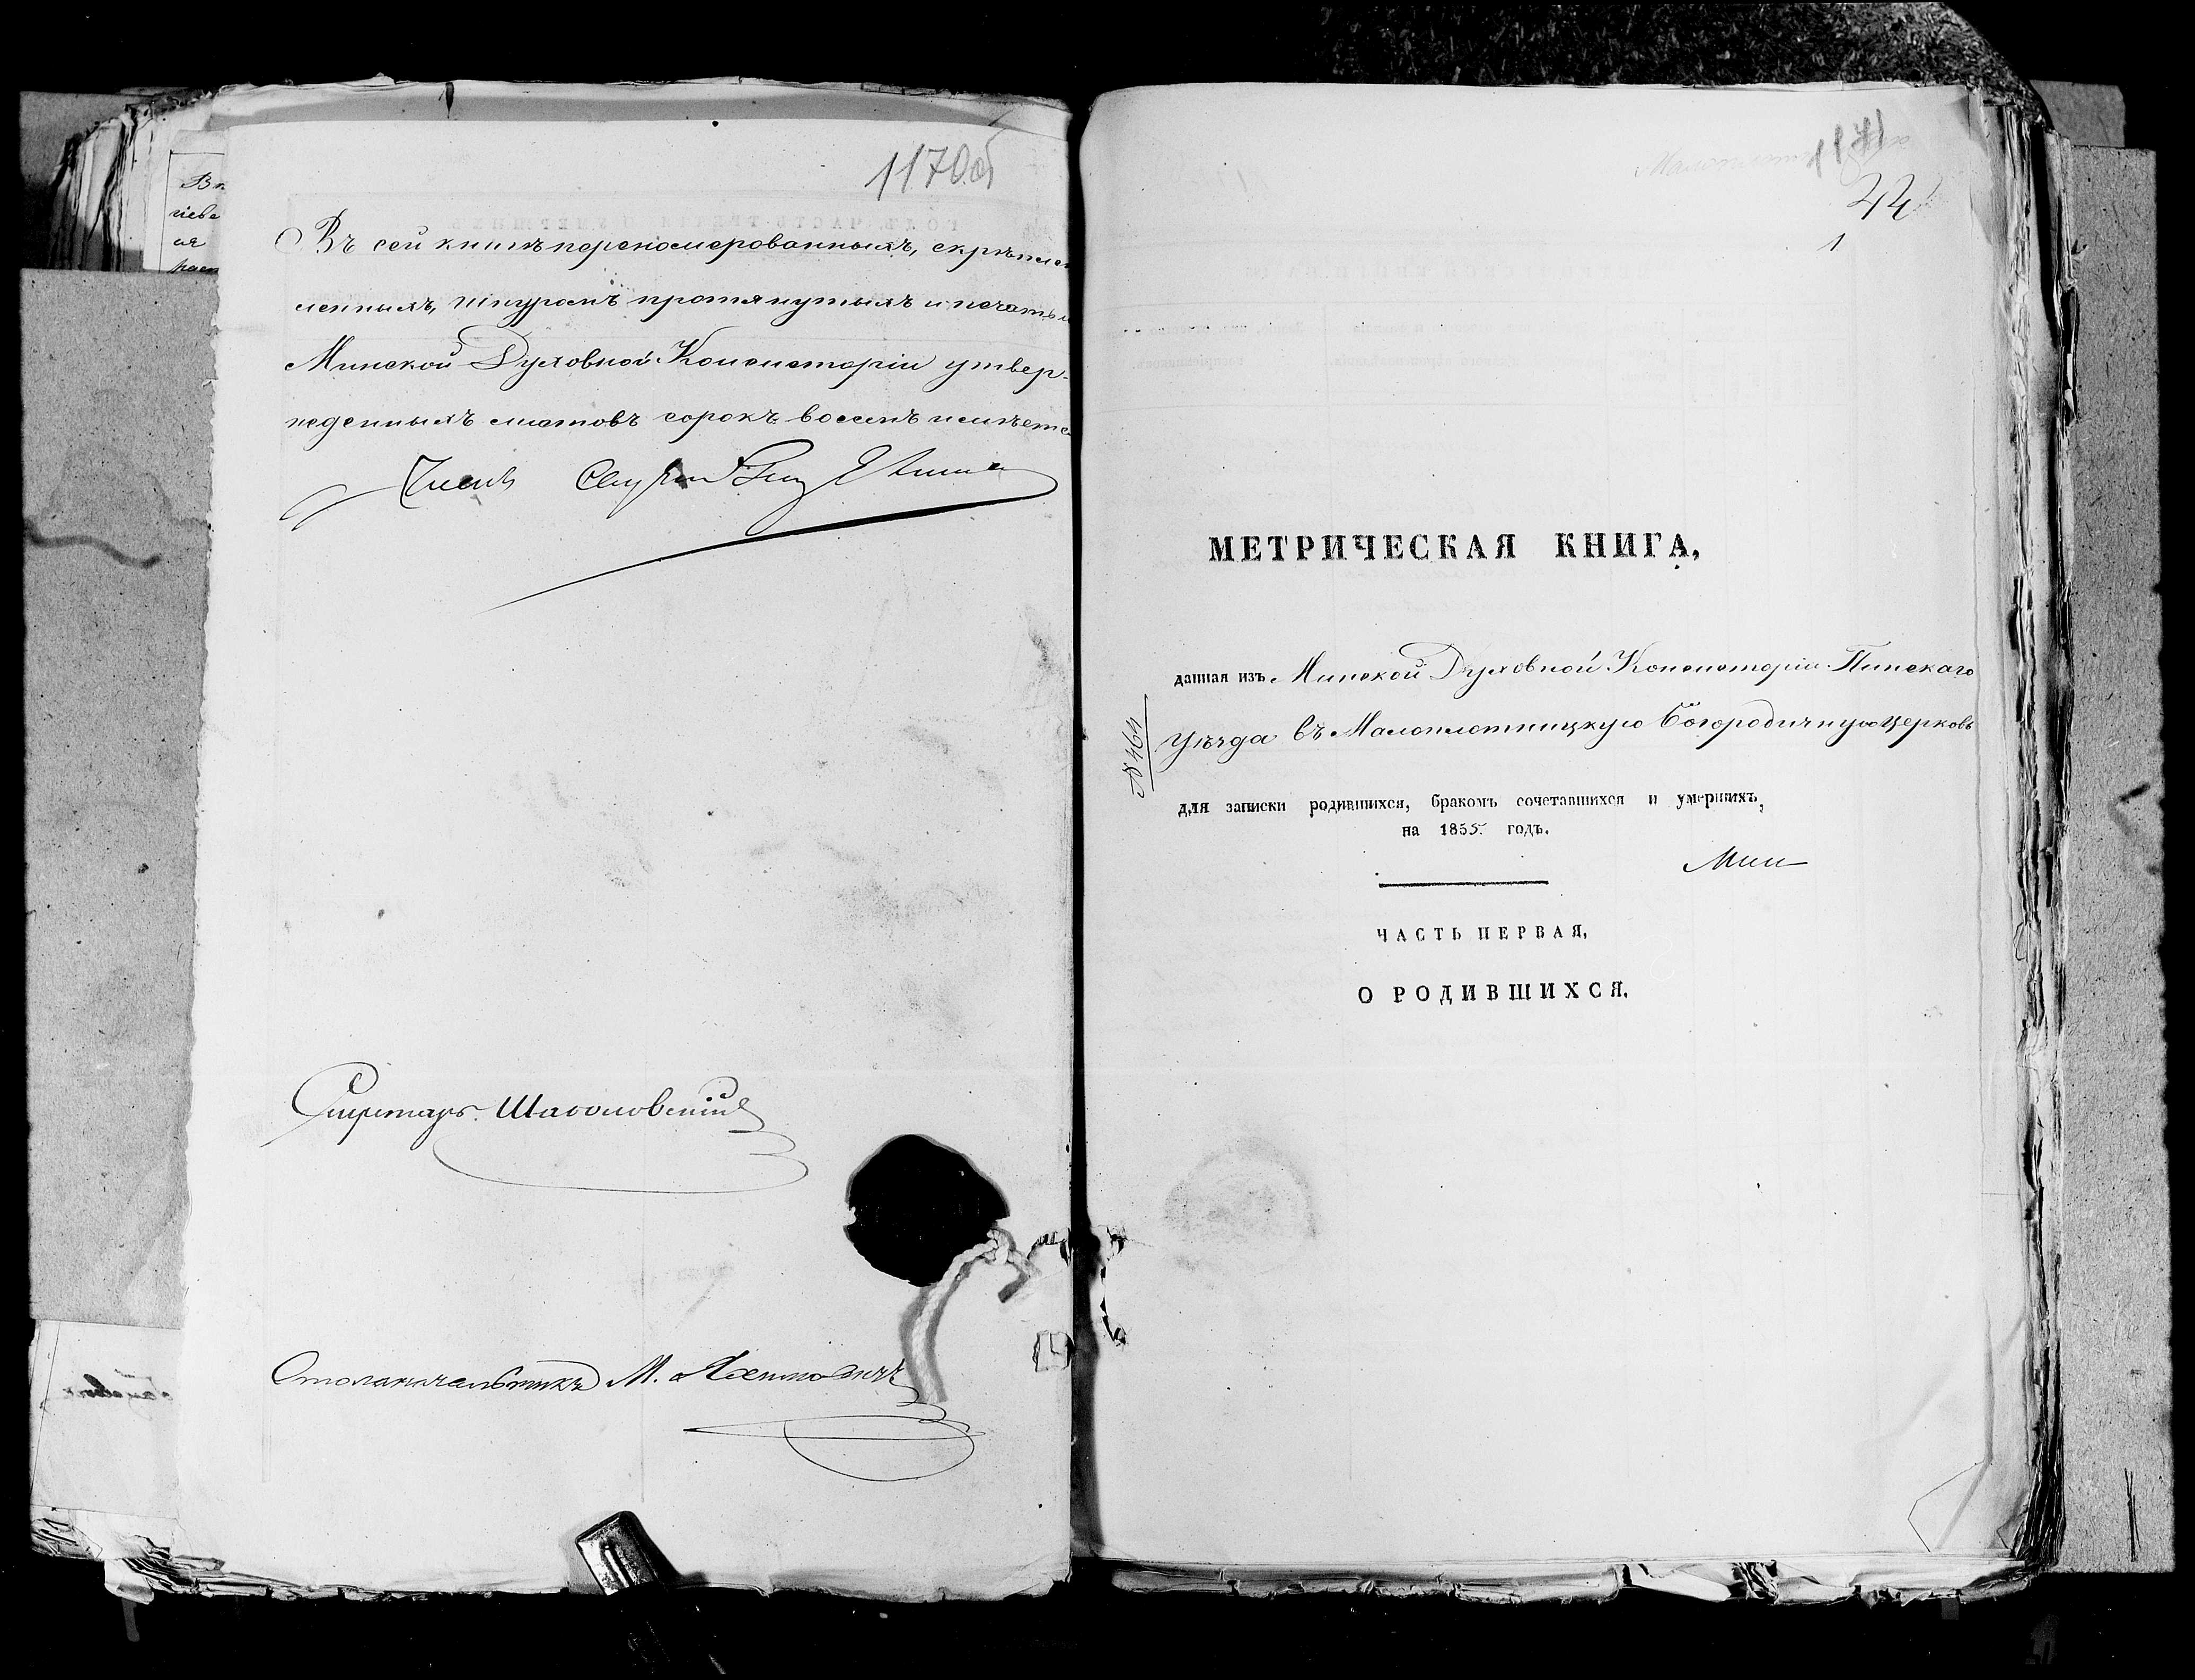 1170об
Въ сей книгѣ переномерованныхъ, скрѣпле
ленныхъ, шнуромъ протянутыхъ и печатью
Минской Духовной Консисторіи утвер-
жденныхъ листовъ сорокъ восемь имѣется
Членъ
Секретарь
Столоначальникъ М.
1171
44
1
МЕТРИЧЕСКАЯ КНИГА,
данная изъ Минской Духовной Консисторіи Пинскаго
Уѣзда въ Малоплотницкую Богородичную церковь
№ 464
для записки родившихся, бракомъ сочетавшихся и умершихъ,
на 1855 годъ.
Мин
ЧАСТЬ ПЕРВАЯ,
О РОДИВШИХСЯ.